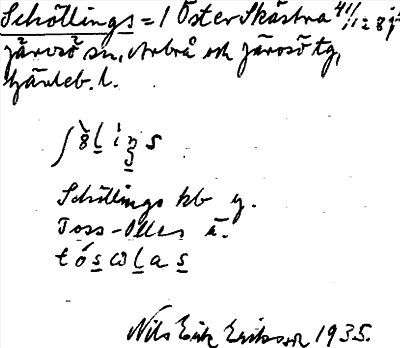 Schöllings = 1 Österskästra 41/128 j
järvsö sn, Arbrå och Järvsö tg,
Gävleb. l.
Schöllings hb g.
Toss-Olles ä.
Nils Erik Eriksson 1935.